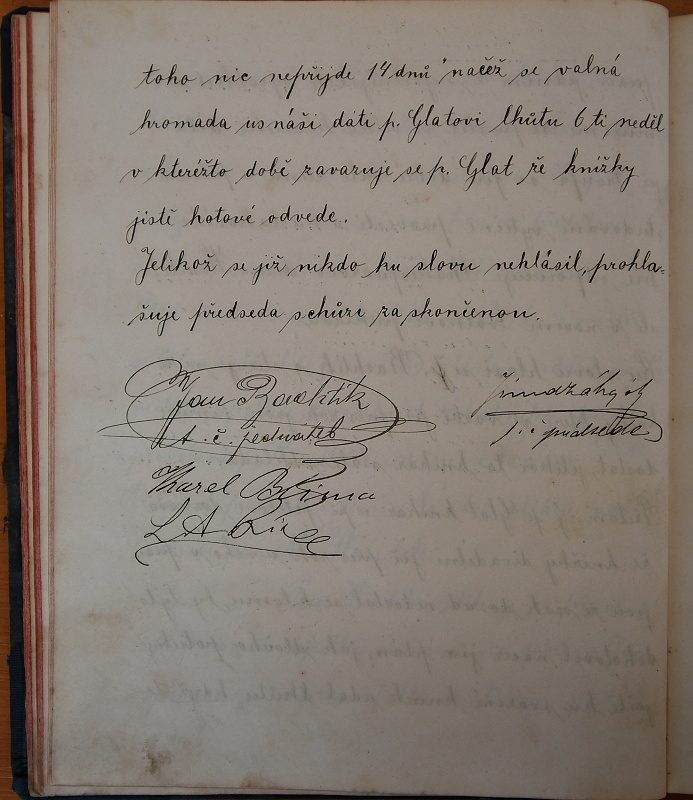 toho nic nepřijde 14 dnů načež se valná
hromada usnáší dáti p. Glatovi lhůtu 6 ti neděl
v kteréžto době zavazuje se p. Glat že knížky
jistě hotové odvede.
Jelikož se již nikdo ku slovu nehlásil, prohla-
šuje předseda schůzi za skončenou.
Jan Bartík
t. č. jednatel
t. č. předseda
Karel Blíma